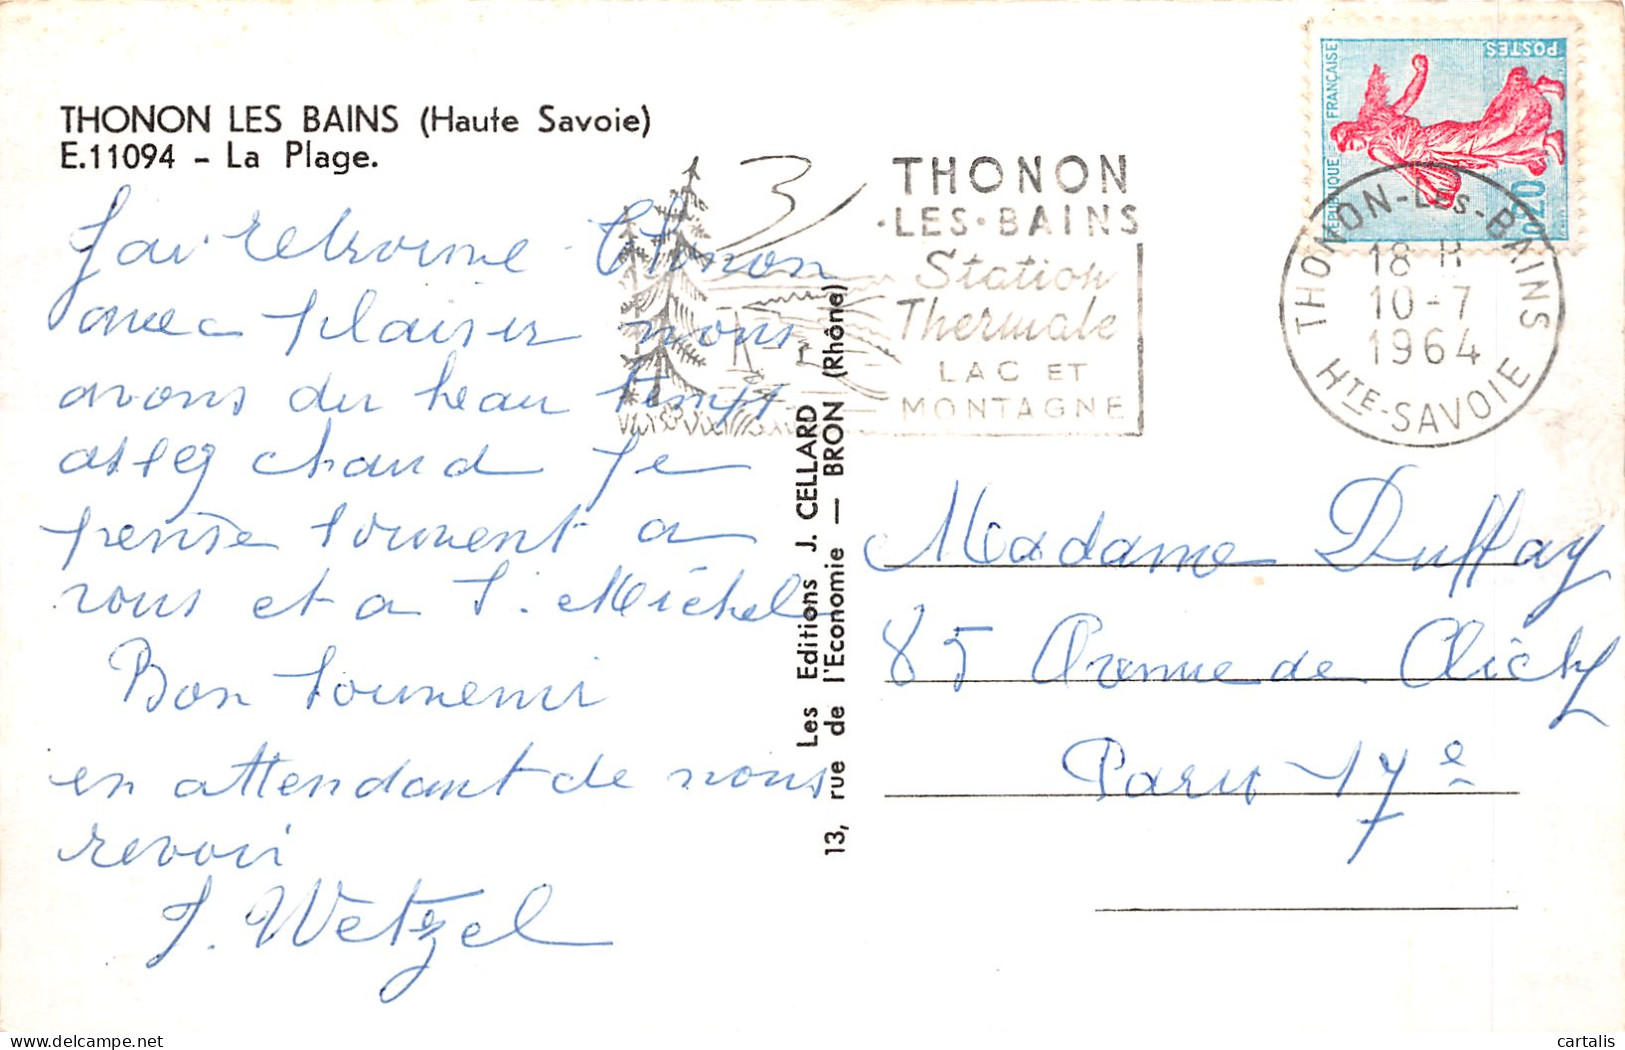 THONON LES BAINS (Haute Savoie)
E.11094 - La Plage.
J'ai retrouvé Thonon
avec plaisir nous
avons du beau temps
assez chaud Je
pense souvent a
vous et a S. Michel
Bon souvenir
en attendant de nous
revoir
J. Wetzel
Les Editions J. CELLARD
13, rue de l'Economie — BRON (Rhône)
THONON
·LES·BAINS
Station
Thermale
LAC ET
MONTAGNE
REPUBLIQUE FRANÇAISE
POSTES
0,20
THONON-LES-BAINS
18 H
10-7
1964
HTE-SAVOIE
Madame Duffay
85 Avenue de Clichy
Paris 17e
cartalis
delcampe.net